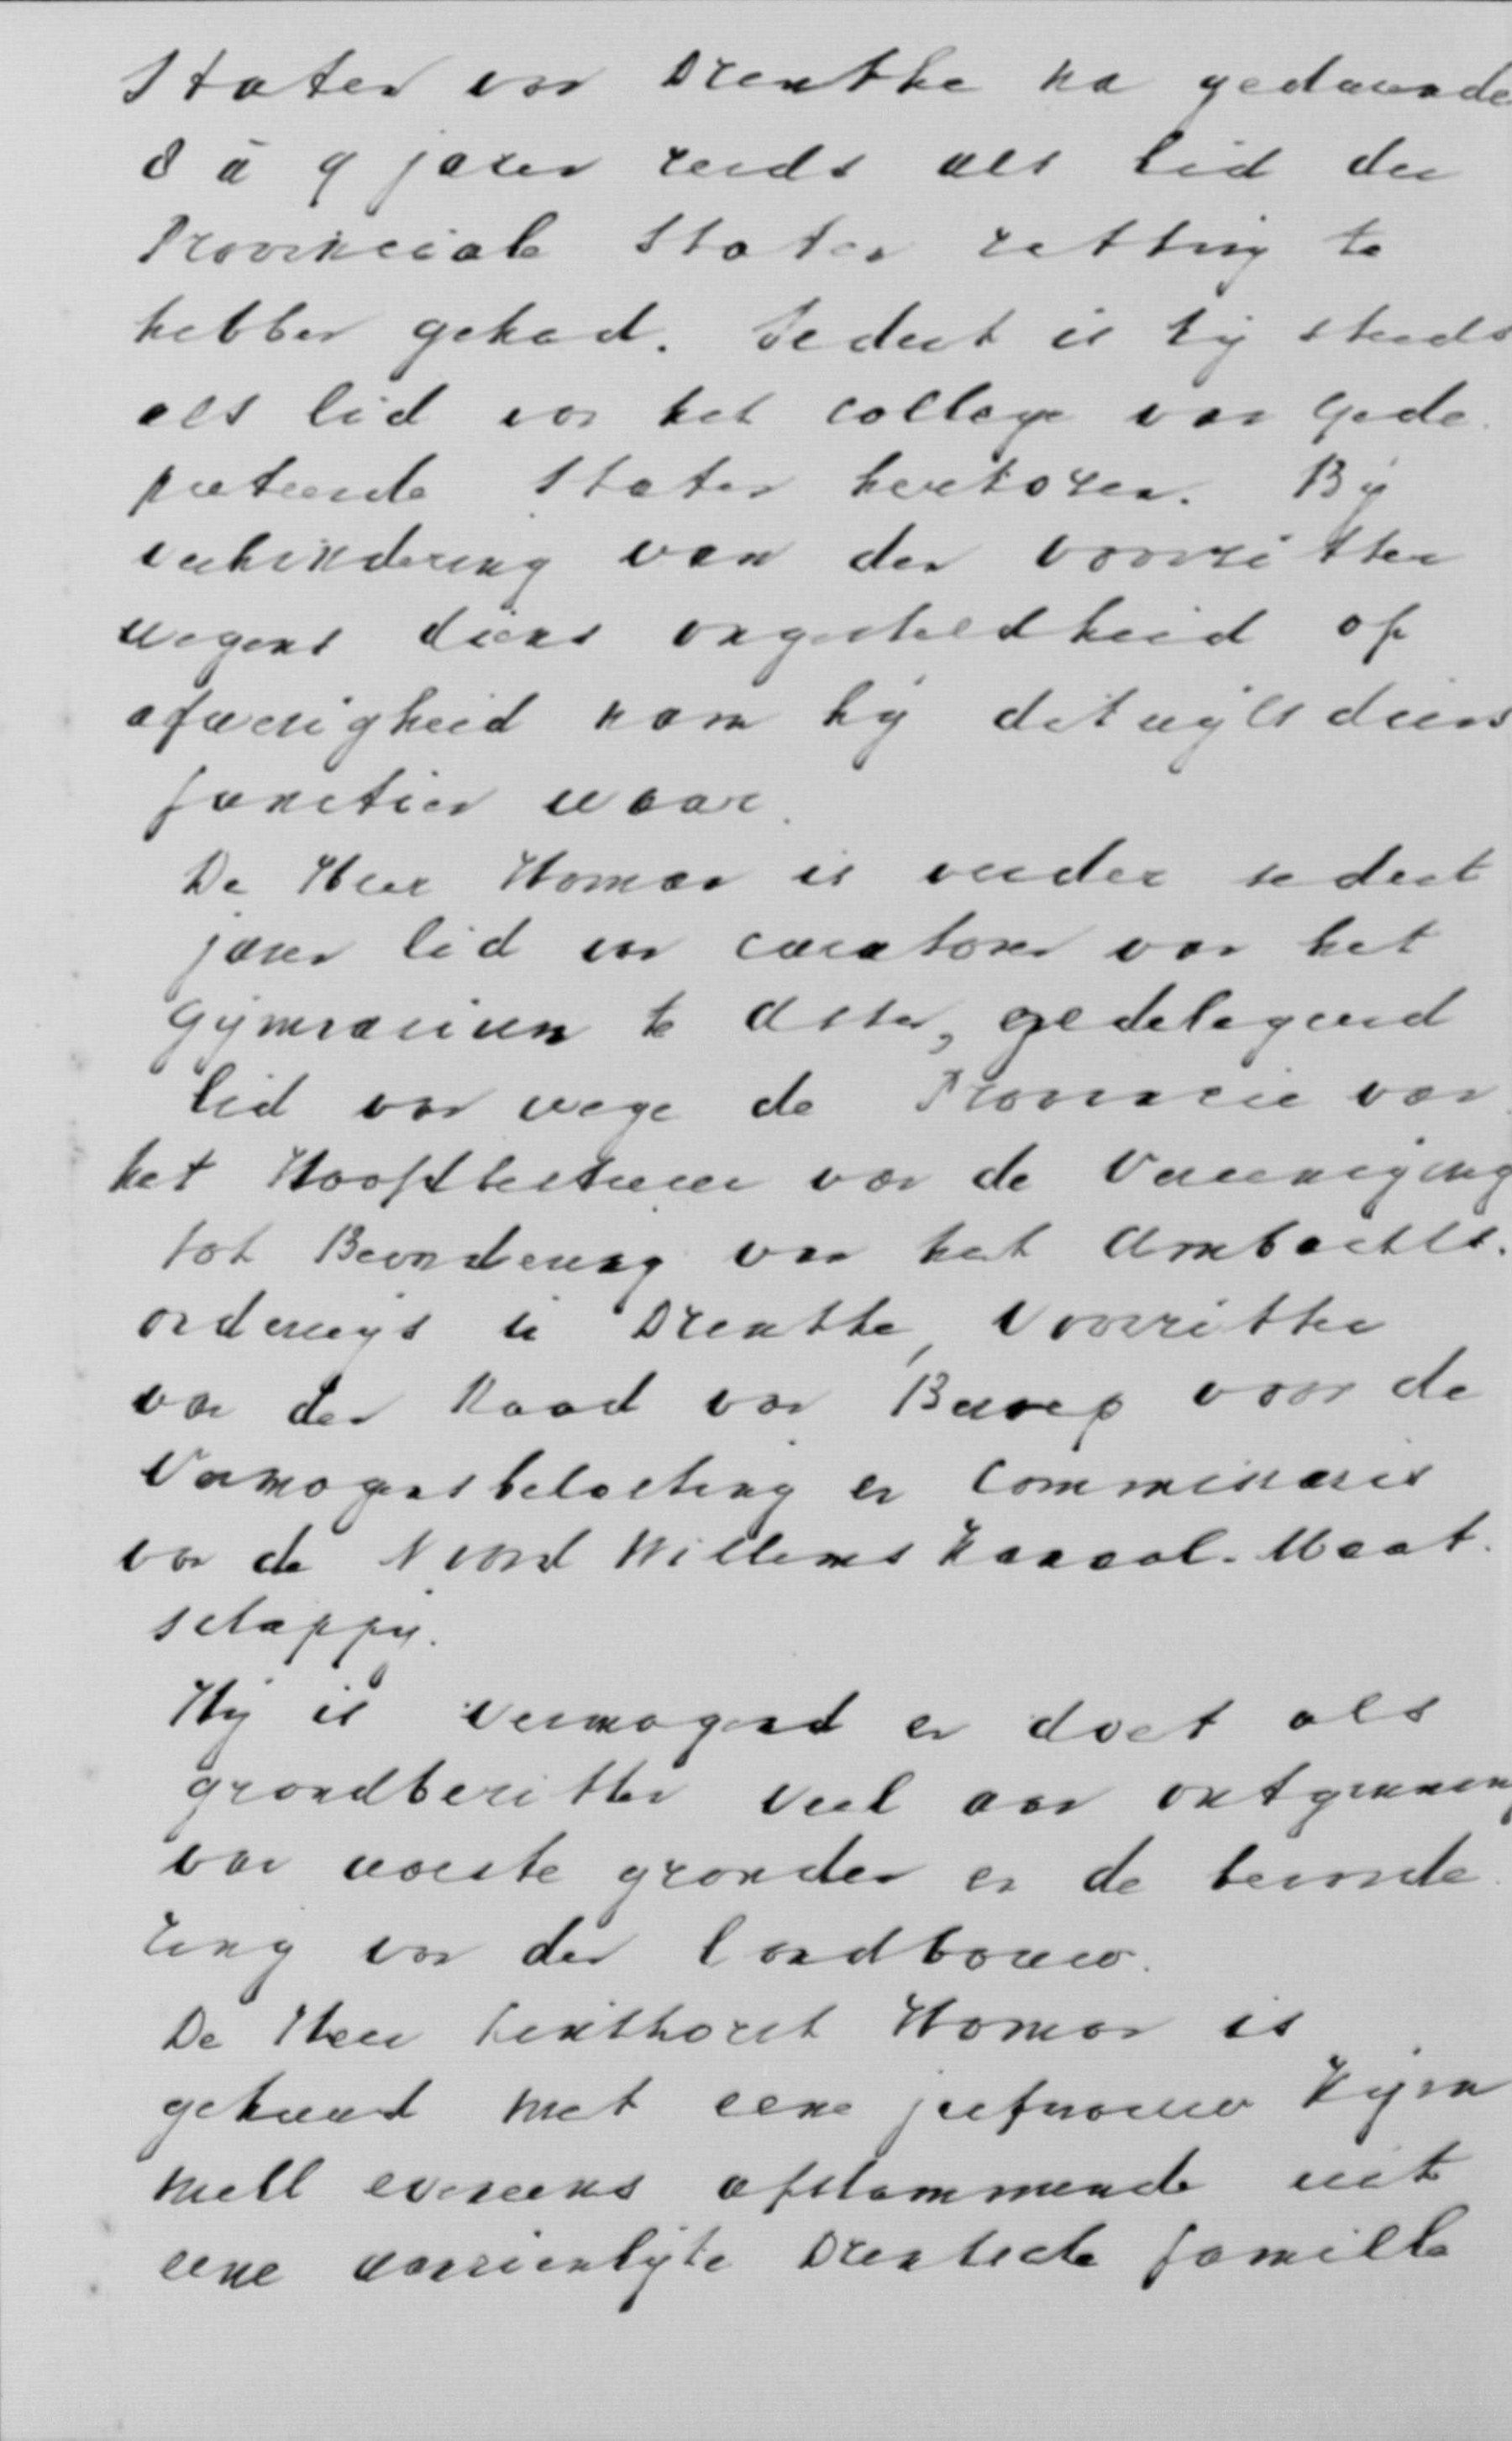 Staten van Drenthe na gedurende
8 à 9 jaren reeds als lid der
Provinciale Staten zitting te
hebben gehad. Sedert is hij steeds
als lid van het college van Gede-
puteerde Staten herkozen. Bij
verhindering van den voorzitter
wegens diens ongesteldheid of
afwezigheid nam hij dikwijls diens
functien waar.
De Heer Homan is verder sedert
jaren lid van curatoren van het
Gymnasium te Assen, gedelegeerd
lid van wege de Provincie van
het Hoofdbestuur van de Vereeniging
tot Bevordering van het Ambachts-
onderwijs in Drenthe, Voorzitter
van den Raad van Beroep voor de
Vermogensbelasting en Commissaris
van de Noord Willems Kanaal-Maat-
schappij.
Hij is vermogend en doet als
grondbezitter veel aan ontginning
van woeste gronden en de bevorde-
ring van den landbouw.
De Heer Linthorst Homan is
gehuwd met eene jufvrouw Kijm
mell eveneens afstammende uit
eene aanzienlijke Drentsche familie